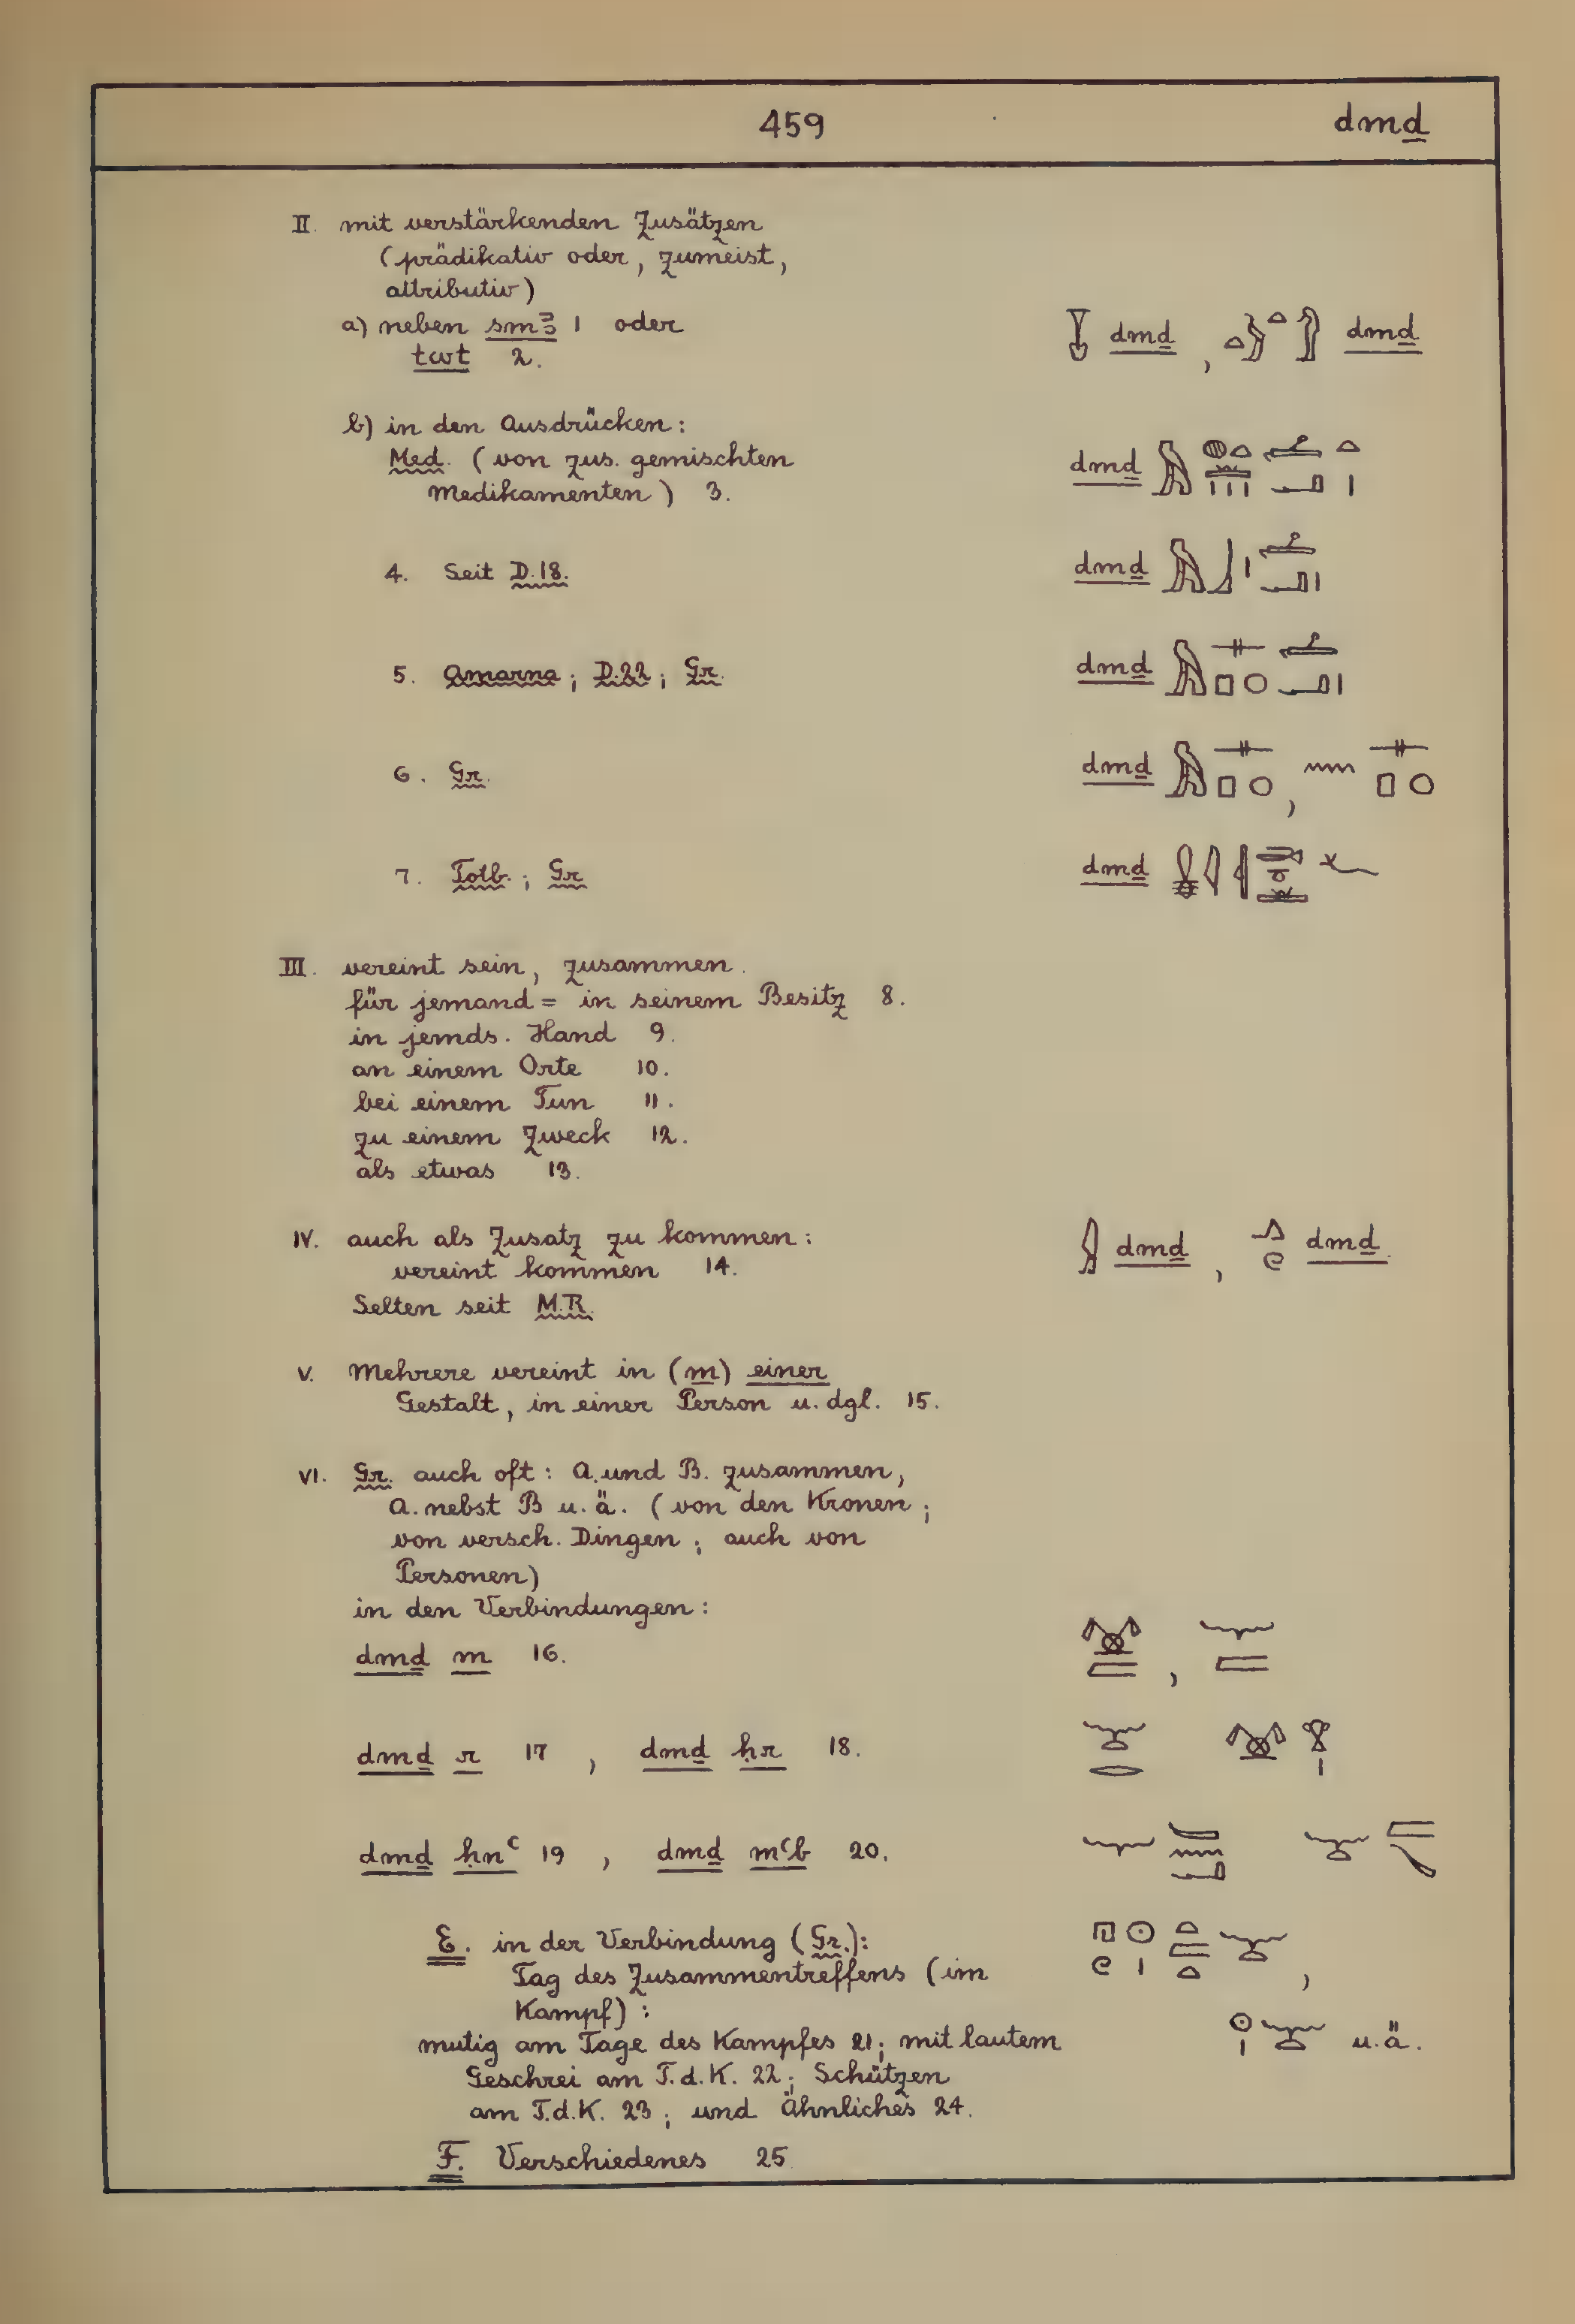 459 dmḏ
II. mit verstärkenden Zusätzen
(prädikativ oder, zumeist,
attributiv)
a) neben smꜣ 1 oder dmḏ , dmḏ
twt 2.
b) in den Ausdrücken:
Med. (von zus. gemischten dmḏ
Medikamenten) 3.
4. Seit D.18. dmḏ
5. Amarna; D.22; Gr. dmḏ
6. Gr. dmḏ ,
7. Totb.; Gr dmḏ
III. vereint sein, zusammen.
für jemand = in seinem Besitz 8.
in jemds. Hand 9.
an einem Orte 10.
bei einem Tun 11.
zu einem Zweck 12.
als etwas 13.
IV. auch als Zusatz zu kommen: dmḏ , dmḏ
vereint kommen 14.
Selten seit M.R.
V. Mehrere vereint in (m) einer
Gestalt, in einer Person u. dgl. 15.
VI. Gr. auch oft: A. und B. zusammen,
A. nebst B u. ä. (von den Kronen;
von versch. Dingen; auch von
Personen)
in den Verbindungen:
dmḏ m 16. ,
dmḏ r 17 , dmḏ ḥr 18.
dmḏ ḥnꜥ 19 , dmḏ mꜥb 20.
E. in der Verbindung (Gr.): ,
Tag des Zusammentreffens (im
Kampf):
mutig am Tage des Kampfes 21; mit lautem u. ä.
Geschrei am T. d. K. 22; Schützen
am T. d. K. 23; und Ähnliches 24.
F. Verschiedenes 25